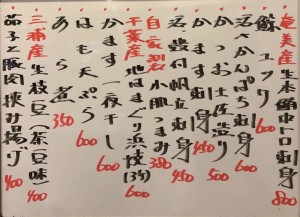 奄美産 生本鮪中トロ刺身 800
鯨ユッケ 600
活かんぱち刺身 600
かつお土佐造り 500
かます刺身 450
活〆殻付帆立刺身 500
自家製 小肌つまみ 380
千葉産 地はまぐり浜焼(3ケ) 600
かます一夜干し 600
はも天ぷら 600
あら煮 350
三浦産 生枝豆(茶豆味) 400
茄子と豚肉挟み揚げ 400